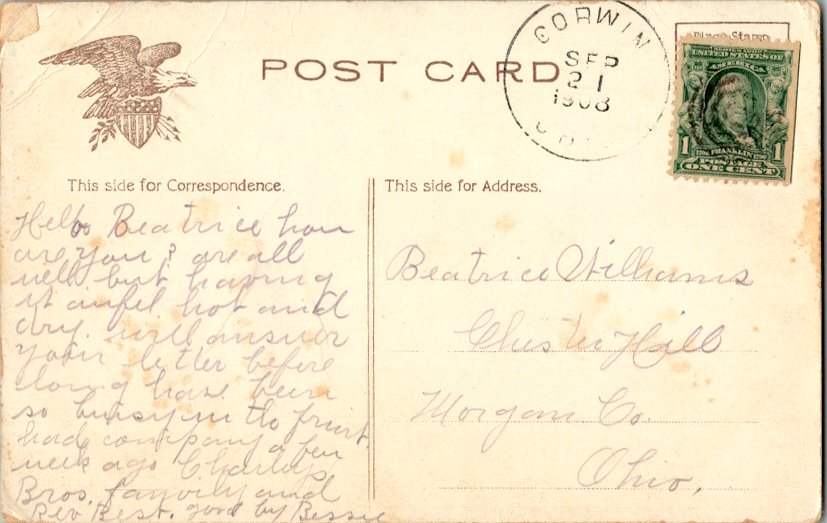 POST CARD
CORWIN
SEP
21
1908
Place Stamp
UNITED STATES OF
AMERICA
1 FRANKLIN 1
POSTAGE
ONE CENT
This side for Correspondence.
Hello Beatrice how
are you? are all
well but having
it awfel hot and
dry. will answer
your letter before
long have been
so busy in the fruit.
had company a few
week ago Charleys
Bros. family and
Rev Best. good by Bessie
This side for Address.
Beatrice Williams
Chester Hill
Morgan Co.
Ohio.